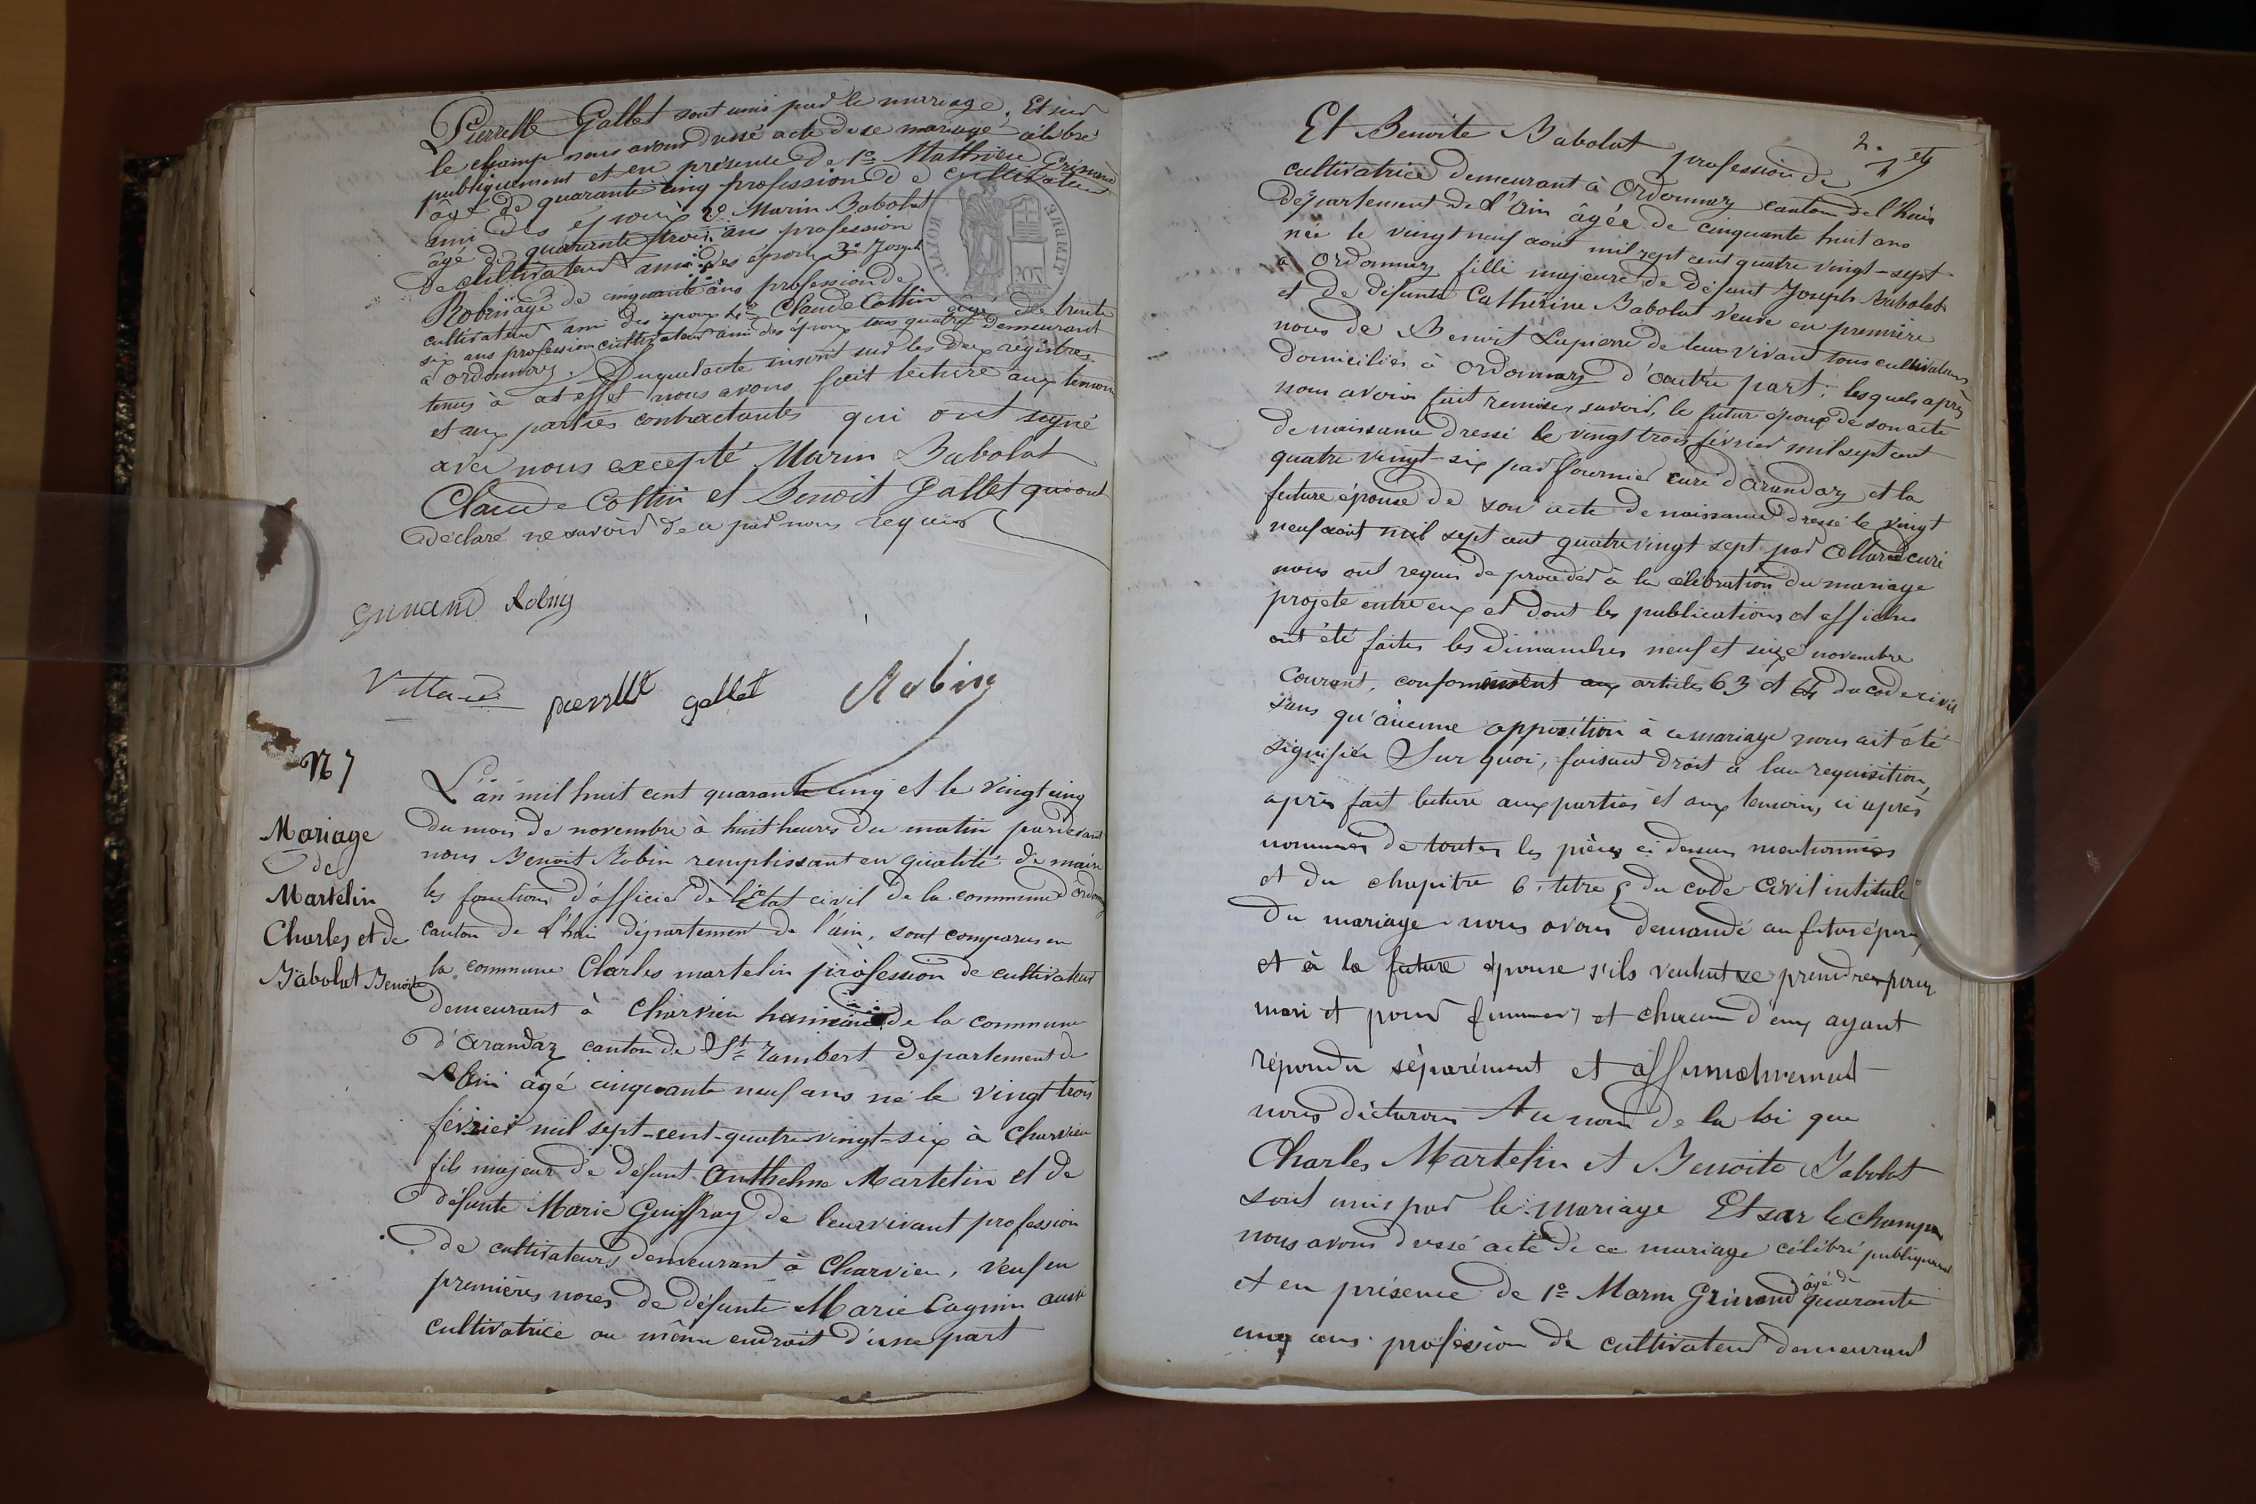 Pierrette Gallet sont unis par le mariage. Et sur
le champ nous avons dressé acte de ce mariage célébré
publiquement et en présence de 1° Mathieu Grimand
âgé de quarante cinq profession de cultivateur
ami des époux 2° Marin Babolat
âgé de quarante trois ans profession
de cultivateur ami des époux 3° Joseph
Robin âgé de cinquante ans profession de
cultivateur ami des époux 4° Claude Cottin âgé de trente
six ans profession cultivateur ami des époux tous quatre demeurant
à ordonnaz. Duquel acte inscrit sur les deux registres
tenus à cet effet nous avons fait lecture aux temoins
et aux parties contractantes qui ont signé
avec nous excepté Marin Babolat
Claude Cottin et Benoit Gallet qui ont
déclaré ne savoir de ce par nous requis
TIMBRE ROYAL
Grimand Robin
pierette gallet Robin
N 7
Mariage
de
Martelin
Charles et de
Babolat Benoite
L'an mil huit cent quarante cinq et le vingt cinq
du mois de novembre à huit heures du matin pardevant
nous Benoit Robin remplissant en qualité de maire
les fonctions d'officier de l'état civil de la commune d'ordonnaz
canton de l'huis département de l'ain, sont comparus en
la commune Charles martelin profession de cultivateur
demeurant à Charvieu hameau de la commune
d'arandaz canton de St Rambert departement de
l'Ain âgé cinquante neuf ans né le vingt trois
février mil sept-cent-quatre-vingt-six à Charvieu
fils majeur de défunt Anthelme Martelin et de
défunte Marie Guiffray de leur vivant profession
de cultivateurs demeurant à Charvieu, veuf en
premières noces de défunte Marie Cagnin aussi
cultivatrice au même endroit d'une part
Et Benoite Babolat profession de
cultivatrice demeurant à Ordonnaz canton de l'huis
département de l'Ain âgée de cinquante huit ans
née le vingt neuf aout mil sept cent quatre vingt-sept
à Ordonnaz fille majeure de défunt Joseph Babolat
et de défunte Catherine Babolat veuve en première
noces de Benoit Lupierre de leur vivant tous cultivateurs
domiciliés à Ordonnaz d'autre part; lesquels après
nous avoir fait remises savoir, le futur époux de son acte
de naissance dressé le vingt trois février mil sept cent
quatre vingt-six par fournier curé d'arandaz et la
future épouse de son acte de naissance dressé le vingt
neuf aout mil sept cent quatre vingt sept par Collard curé
nous ont requis de procéder à la célébration du mariage
projeté entre eux et dont les publications et affiches
ont été faites les dimanches neuf et seize novembre
courant, conformément aux articles 63 et 64 du code civil
sans qu'aucune opposition à ce mariage nous ait été
signifiée Sur quoi, faisant droit à leur requisition,
après fait lecture aux parties et aux temoins ci après
nommés de toutes les pièces ci dessus mentionnées
et du chapitre 6 titre 5 du code civil intitulé
Du mariage nous avons demandé au futur époux
et à la future épouse s'ils veulent se prendre pour
mari et pour femme, et chacun d'eux ayant
répondu séparément et affirmativement
nous déclarons Au nom de la loi que
Charles Martelin et Benoite Babolat
sont unis par le mariage Et sur le champ
nous avons dressé acte de ce mariage célébré publiquement
et en présence de 1° Marin Grimand âgé de quarante
cinq ans profession de cultivateur demeurant